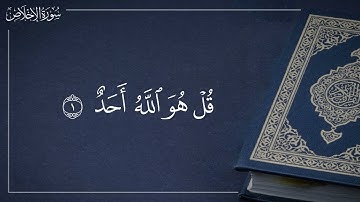 سُورَةُ الإِخْلَاصِ
قُلۡ هُوَ ٱللَّهُ أَحَدٌ ١